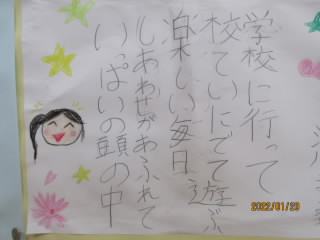 学校に行って
校ていにでて遊ぶ
楽しい毎日
しあわせがあふれて
いっぱいの頭の中
2022/01/20